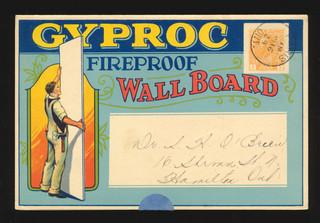 GYPROC
FIREPROOF
WALL BOARD
Dr S. H. O'Brien
16 St. N.
Hamilton Ont